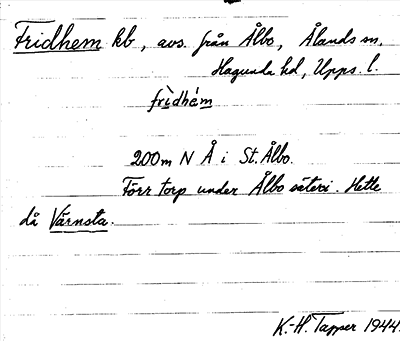 Fridhem kb, avs. från Ålbo, Ålands sn.
Hagunda hd, Upps. l.
frìdhém
200 m N Å i St. Ålbo.
Förr torp under Ålbo säteri. Hette
då Värnsta.
K.-H. Tapper 1944.